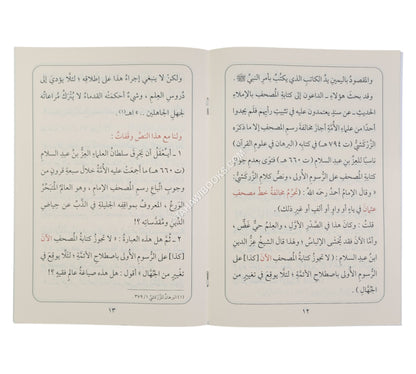 والمقصودُ باليمين يدُ الكاتب الذي يكتُبُ بأمرِ النبيِّ ﷺ .
وقد بحثَ هؤلاءِ ـ الداعون إلى كتابةِ المُصحفِ بالإملاءِ
الحديثِ ـ عن سندٍ يعتمدون عليه في تثبيتِ رأيهم فلم يجدوا
أحدًا من علماءِ الأمَّة أجازَ مخالفةَ رسمِ المصحفِ إلا ما ذكرَه
الزَّركشيُّ ( ت ٧٩٤ هـ ) في كتابِه ( البرهان في علومِ القرآنِ )
ناسبًا للعِزِّ بنِ عبدِ السلامِ ( ت ٦٦٠ هـ ) فتوى بعدم جوازِ
كتابةِ المُصحفِ على الرُّسومِ الأولى ، ونصُّ كلامِ الزَّركشيِّ :
« وقالَ الإمامُ أحمدُ رحمَه اللهُ : ( تحرُمُ مخالفةُ خطِّ مصحفِ
عثمانَ في ياءٍ أو واوٍ أو ألفٍ أو غيرِ ذلك ) .
قلتُ : وكانَ هذا في الصَّدرِ الأوَّلِ ، والعلمُ حيٌّ غضٌّ ،
وأمَّا الآن فقد يُخشى الإلباسُ ، ولهذا قالَ الشيخُ عزُّ الدينِ
ابنُ عبدِ السلامِ : ( لا تجوزُ كتابةُ المصحفِ الآنَ [ كذا ] على
الرُّسومِ الأولى باصطلاحِ الأئمَّةِ ؛ لئلَّا يوقعَ في تغييرٍ من
الجُهَّالِ ) .
١٢
ولكنْ لا ينبغي إجراءُ هذا على إطلاقِه ؛ لئلَّا يؤديَ إلى
دُروسِ العِلمِ ، وشيءٌ أحكمَتْه القدماءُ لا يُتْرَكُ مُراعاتُه
لجهلِ الجاهلين » . اهـ(١) .
ولنا مع هذا النصِّ وقَفَاتٌ :
١ ـ أيُعقَلُ أن يَخرِقَ سلطانُ العلماءِ العِزُّ بنُ عبدِ السلامِ
( ت ٦٦٠ هـ ) ما أجمعَتْ عليه الأمَّةُ خلالَ سبعةِ قرونٍ من
وجوبِ اتِّباعِ رسمِ المصحفِ الإمامِ ، وهو العالمُ المتبحِّرُ
الوَرِعُ ، المعروفُ بمواقفِه الجليلةِ في الذَّبِّ عن حياضِ
الدِّينِ ومقدَّساتِه ؟
٢ ـ ثمَّ هل هذه العبارةُ : « لا تجوزُ كتابةُ المصحفِ الآنَ
[ كذا ] على الرُّسومِ الأولى باصطلاحِ الأئمَّةِ ؛ لئلَّا يوقعَ في
تغييرٍ من الجُهَّالِ » أقول : هل هذه صياغةُ عالمٍ فقيهٍ ؟!
(١) البرهان للزركشيِّ ٣٧٩/١
١٣